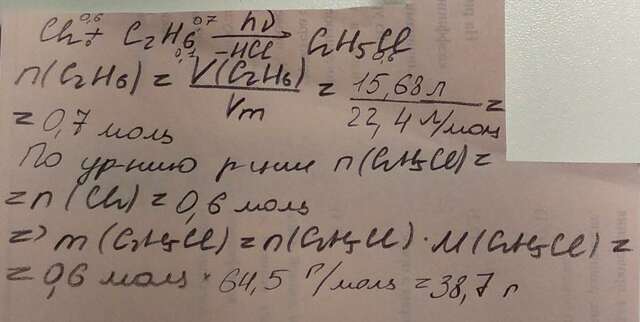 Cl₂ + C₂H₆ hν/-HCl → C₂H₅Cl
n(C₂H₆) = V(C₂H₆)/Vm = 15,68 л / 22,4 л/моль =
= 0,7 моль
По ур-нию р-ции n(C₂H₅Cl) =
= n(Cl₂) = 0,6 моль
=> m(C₂H₅Cl) = n(C₂H₅Cl) · M(C₂H₅Cl) =
= 0,6 моль · 64,5 г/моль = 38,7 г